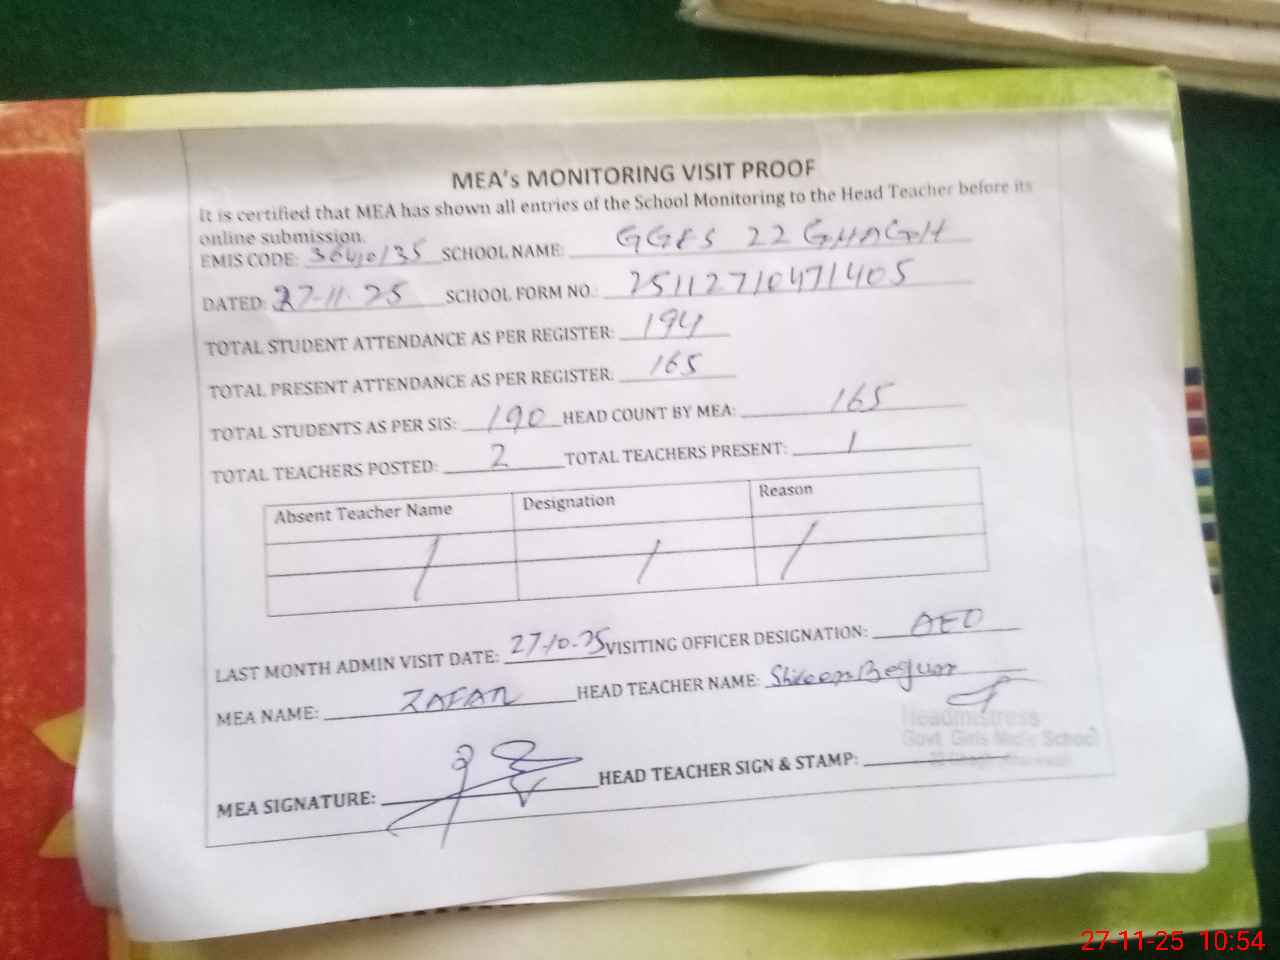 MEA's MONITORING VISIT PROOF
It is certified that MEA has shown all entries of the School Monitoring to the Head Teacher before its
online submission.
EMIS CODE: SCHOOL NAME: GGES 22 GHAGH
DATED: 27-11-25 SCHOOL FORM NO.: 25112710471405
TOTAL STUDENT ATTENDANCE AS PER REGISTER: 194
TOTAL PRESENT ATTENDANCE AS PER REGISTER: 165
TOTAL STUDENTS AS PER SIS: 190 HEAD COUNT BY MEA: 165
TOTAL TEACHERS POSTED: 2 TOTAL TEACHERS PRESENT: 1
Absent Teacher Name Designation Reason
LAST MONTH ADMIN VISIT DATE: 27-10-25 VISITING OFFICER DESIGNATION: AEO
MEA NAME: ZAFAR HEAD TEACHER NAME: Shireen Begum
Headmistress
Govt. Girls School
MEA SIGNATURE: HEAD TEACHER SIGN & STAMP:
27-11-25 10:54